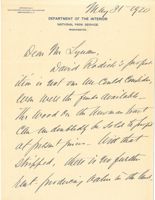 May 31 1920
DEPARTMENT OF THE INTERIOR
NATIONAL PARK SERVICE
WASHINGTON
Dear Mr Lyman
David Rodick's proposi-
tion is not one we could consider
even were the funds available
The wood on the Newman tract
can undoubtedly be sold to people
at present prices. With that
stripped, there is no further
rent producing value in the land